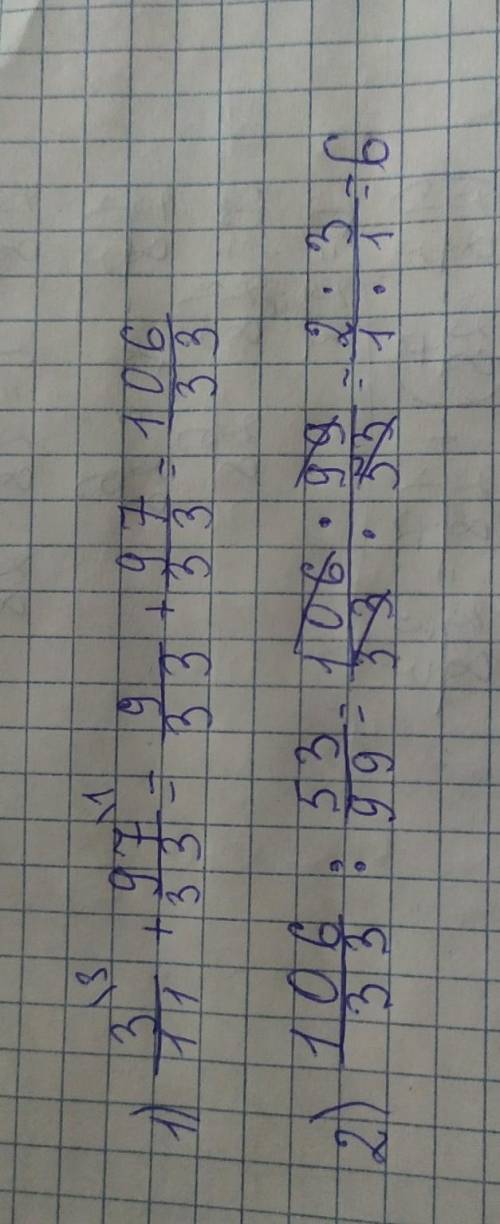 1) 3/11 \3 + 97/33 \1 = 9/33 + 97/33 = 106/33
2) 106/33 : 53/99 = 106 · 99/33 · 53 = 2 · 3/1 · 1 = 6